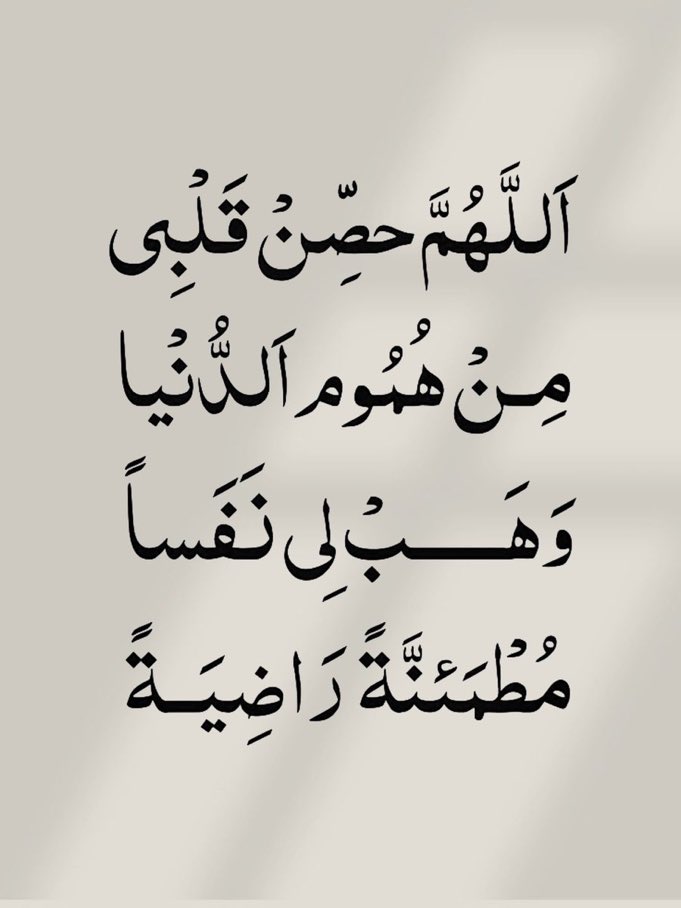 اَللَّهُمَّ حصِّنْ قَلْبِى
مِنْ هُمُوم اَلدُّنْيا
وَهَبْ لِى نَفَساً
مُطْمَئنَّةً رَاضِيَةً